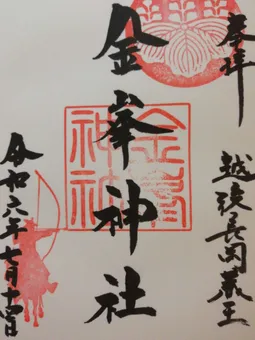 奉拝
越後長岡蔵王
金峯神社
令和六年七月十四日